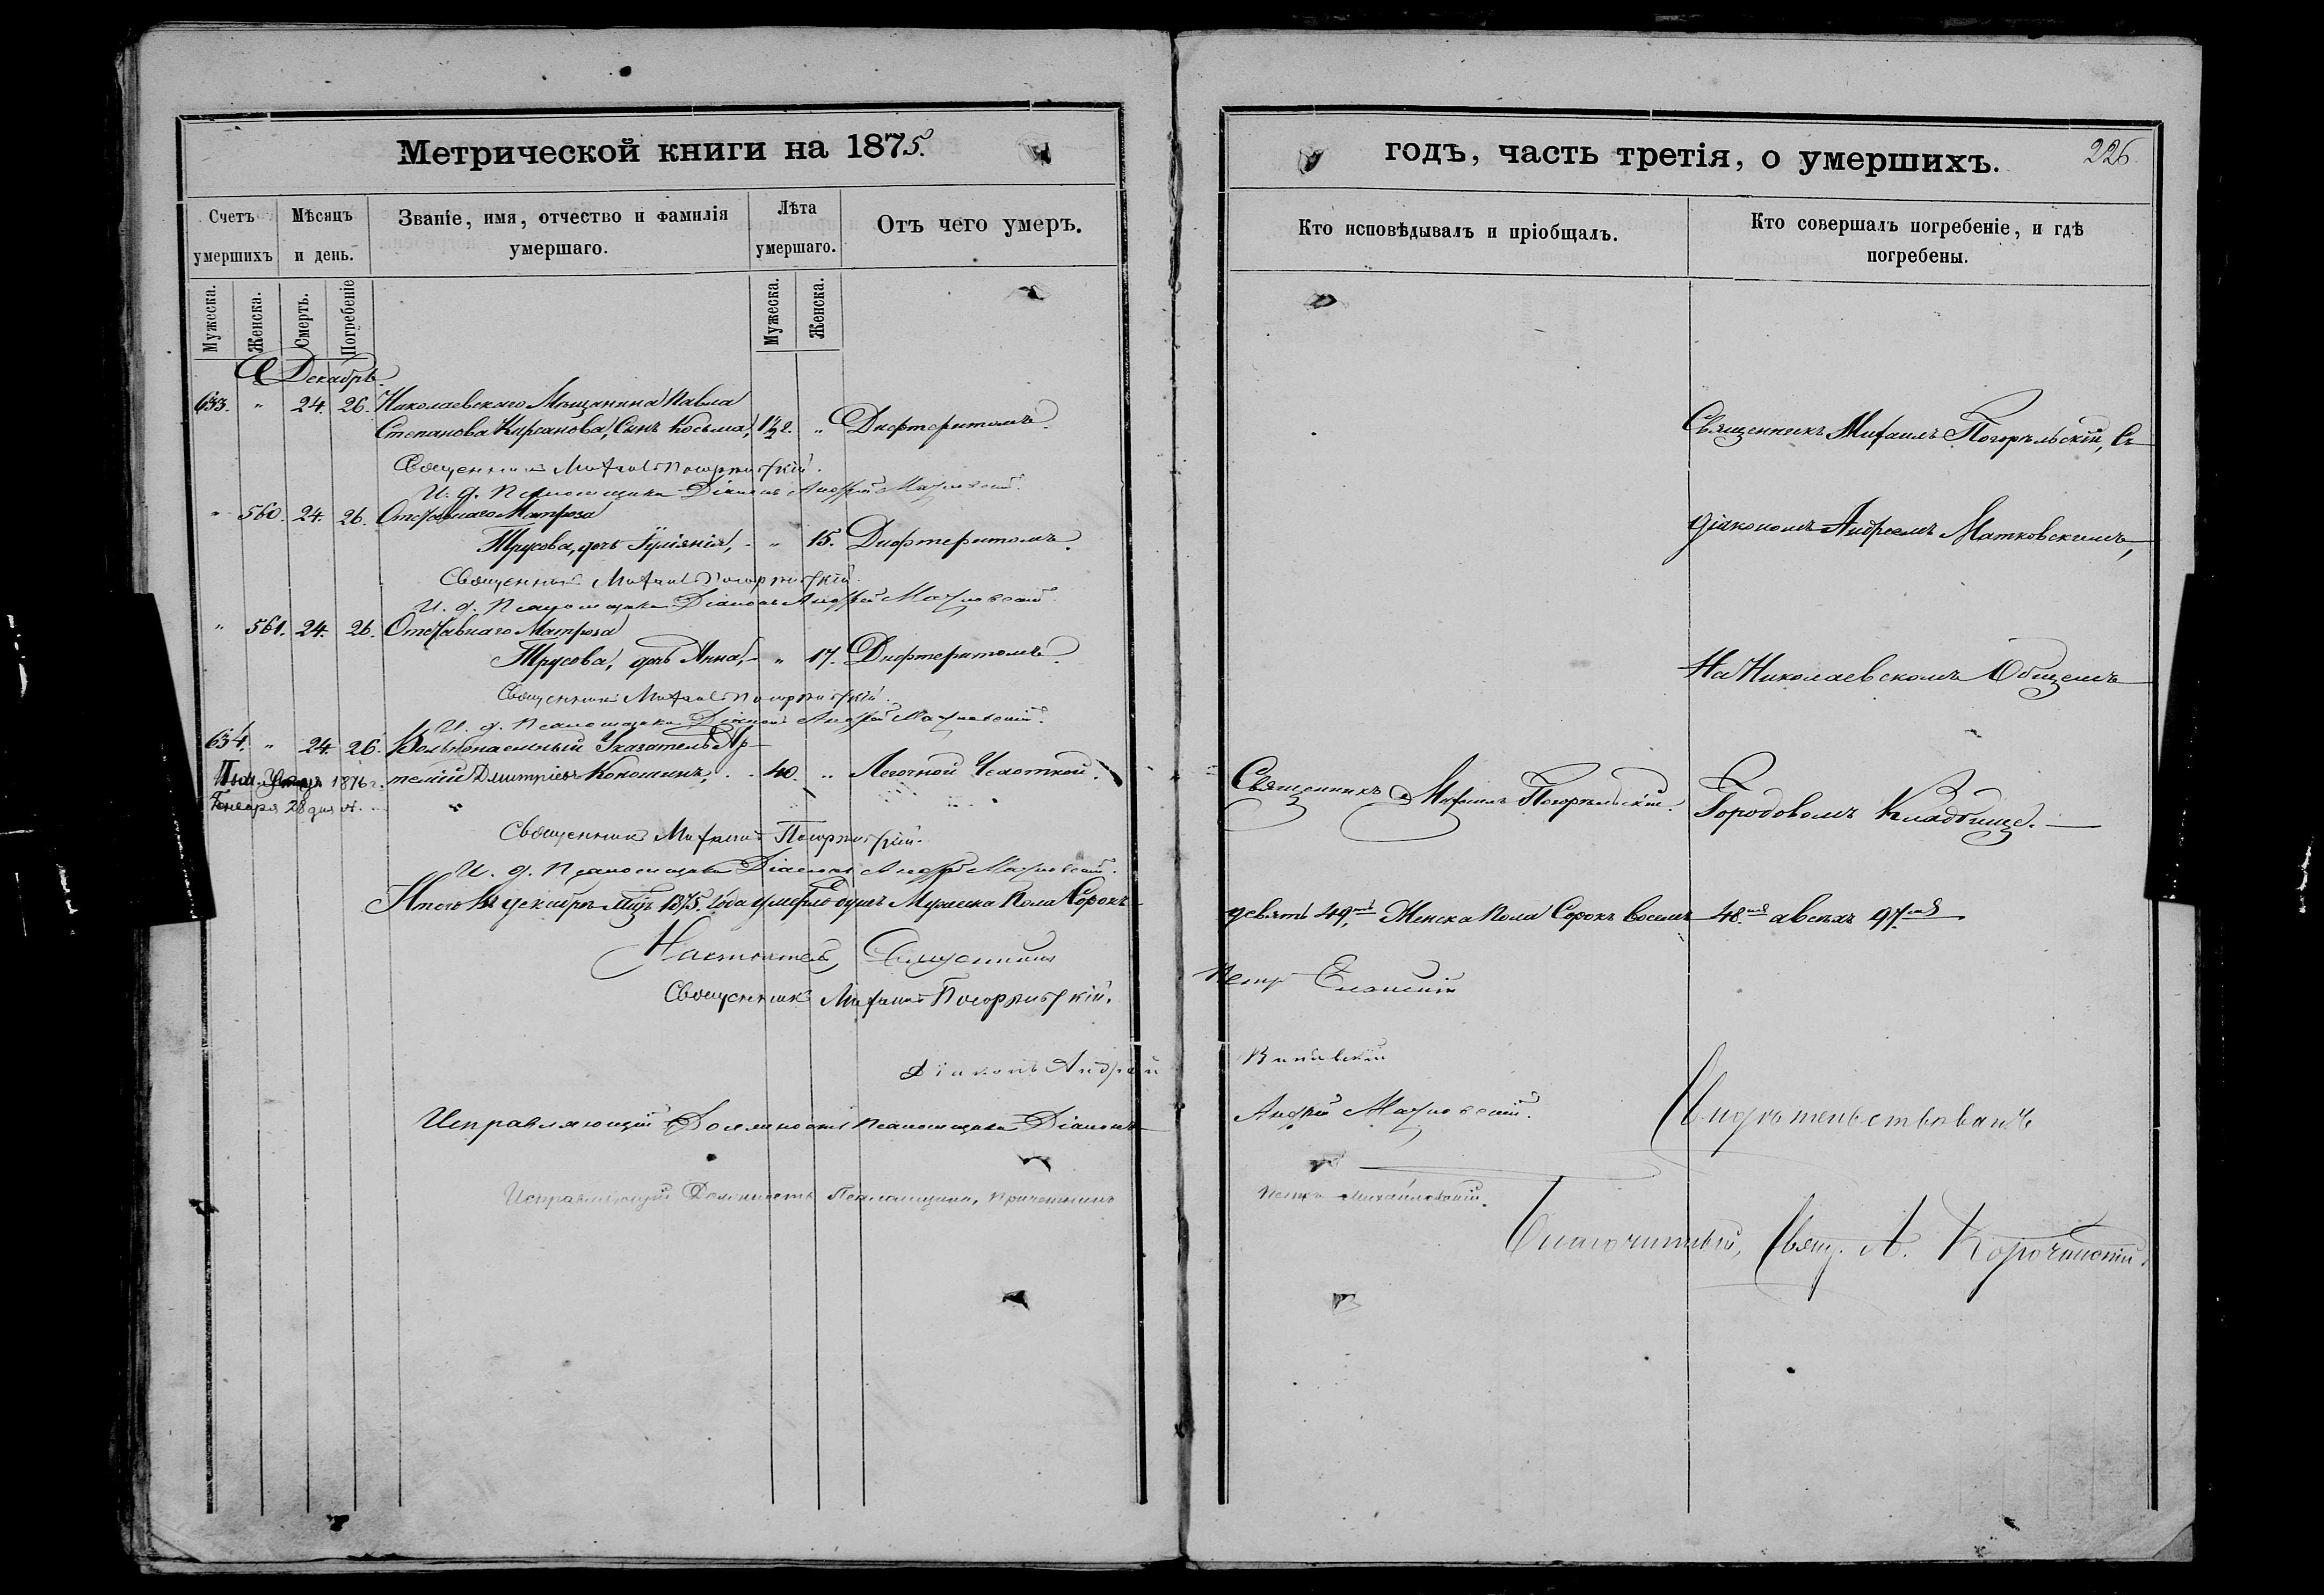 Метрической книги на 1875.
годъ, часть третія, о умершихъ.
226.
Счетъ умершихъ
Мѣсяцъ и день.
Званіе, имя, отчество и фамилія умершаго.
Лѣта умершаго.
Отъ чего умеръ.
Кто исповѣдывалъ и пріобщалъ.
Кто совершалъ погребеніе, и гдѣ погребены.
Мужеска.
Женска.
Смерть.
Погребеніе
Мужеска.
Женска.
Декабрь.
633. " 24. 26. Николаевскаго Мѣщанина Павла
Степанова Кирсанова, Сынъ Косьма, 1½ г. " Дифтеритомъ.
Священникъ Михаилъ Погорѣльскій, съ
Священникъ Михаилъ Погорѣльскій.
И. д. Псаломщика Діаконъ Андрей Матковскій.
" 560. 24. 26. Отставнаго Матроса
Трусова, дочь Іуліянія, " 15. Дифтеритомъ.
діакономъ Андреемъ Матковскимъ,
Священникъ Михаилъ Погорѣльскій.
И. д. Псаломщика Діаконъ Андрей Матковскій.
" 561. 24. 26. Отставнаго Матроса
Трусова, дочь Анна, " 17. Дифтеритомъ.
На Николаевскомъ Общемъ
Священникъ Михаилъ Погорѣльскій.
И. д. Псаломщика Діаконъ Андрей Матковскій.
634. " 24. 26. Вольнонаемный Указатель Ар-
1876 г. темій Димитріевъ Кокошинъ, 40. " Легочной Чахоткой.
Священникъ Михаилъ Погорѣльскій.
Городовомъ Кладбищѣ.
Генваря 28 дня
Священникъ Михаилъ Погорѣльскій.
И. д. Псаломщика Діаконъ Андрей Матковскій.
Итого въ декабрѣ м-цѣ 1875. года умерло душъ Мужеска Пола Сорокъ
девять 49, Женска Пола Сорокъ восемь 48. а всѣхъ 97.
Настоятель, Священникъ
Петръ Еланскій
Священникъ Михаилъ Погорѣльскій.
Діаконъ Андрей
Исправляющій Должность Псаломщика Діаконъ
Андрей Матковскій.
Свидѣтельствовалъ
Исправляющій Должность Псаломщика, Причетникъ
Петръ Михайловскій.
Благочинный, Свящ. А. Корочанскій.